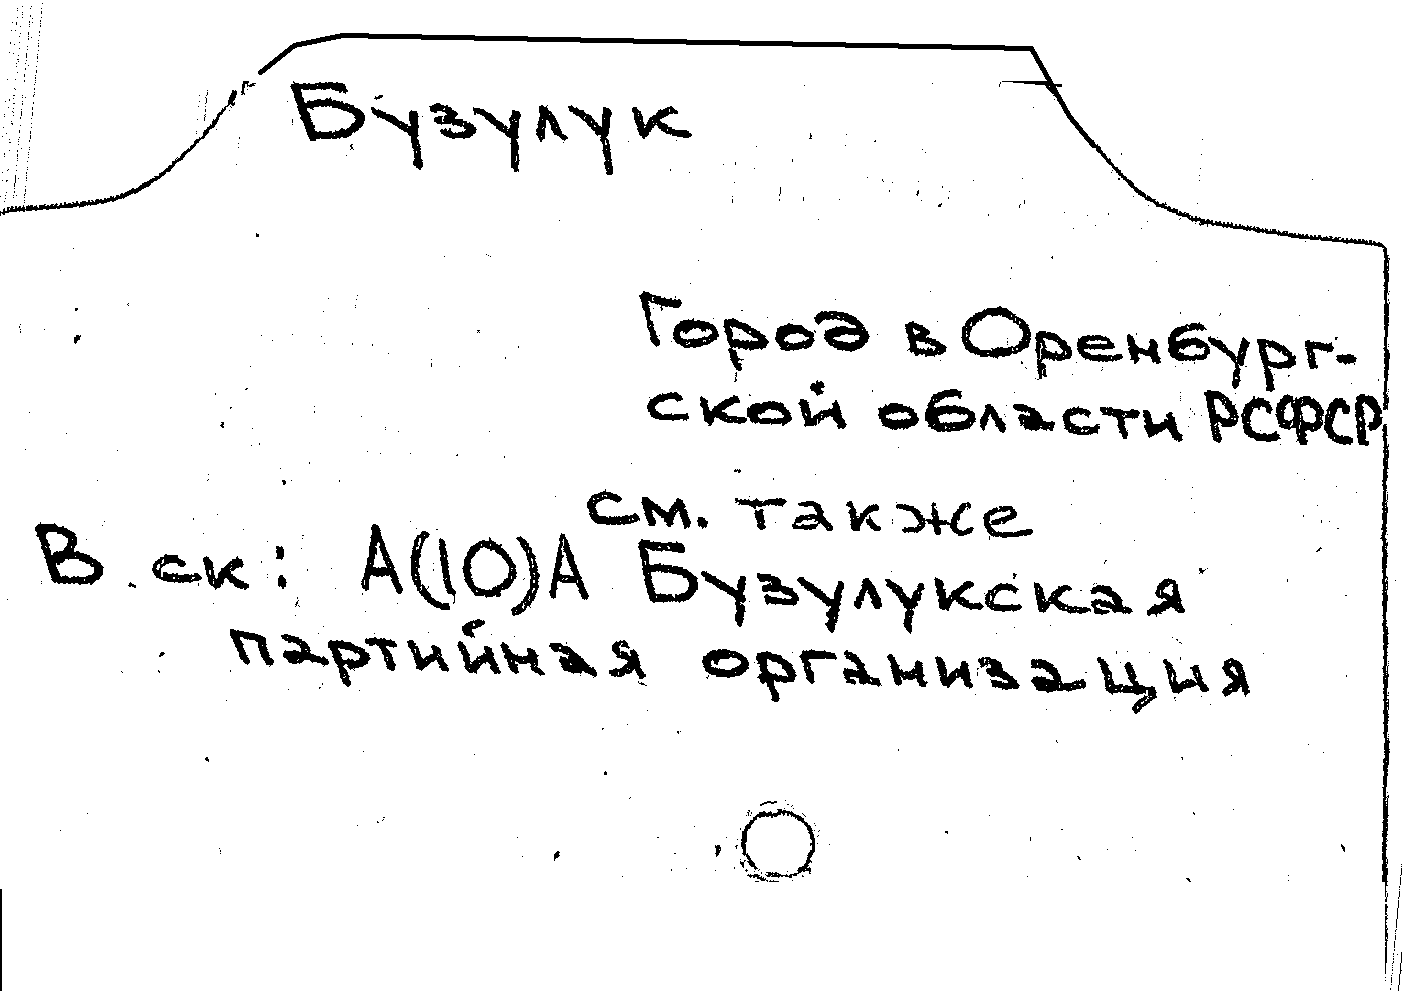 Бузулук
Город в Оренбург-
ской области РСФСР
см. также
В ск: А(10)А Бузулукская
партийная организация